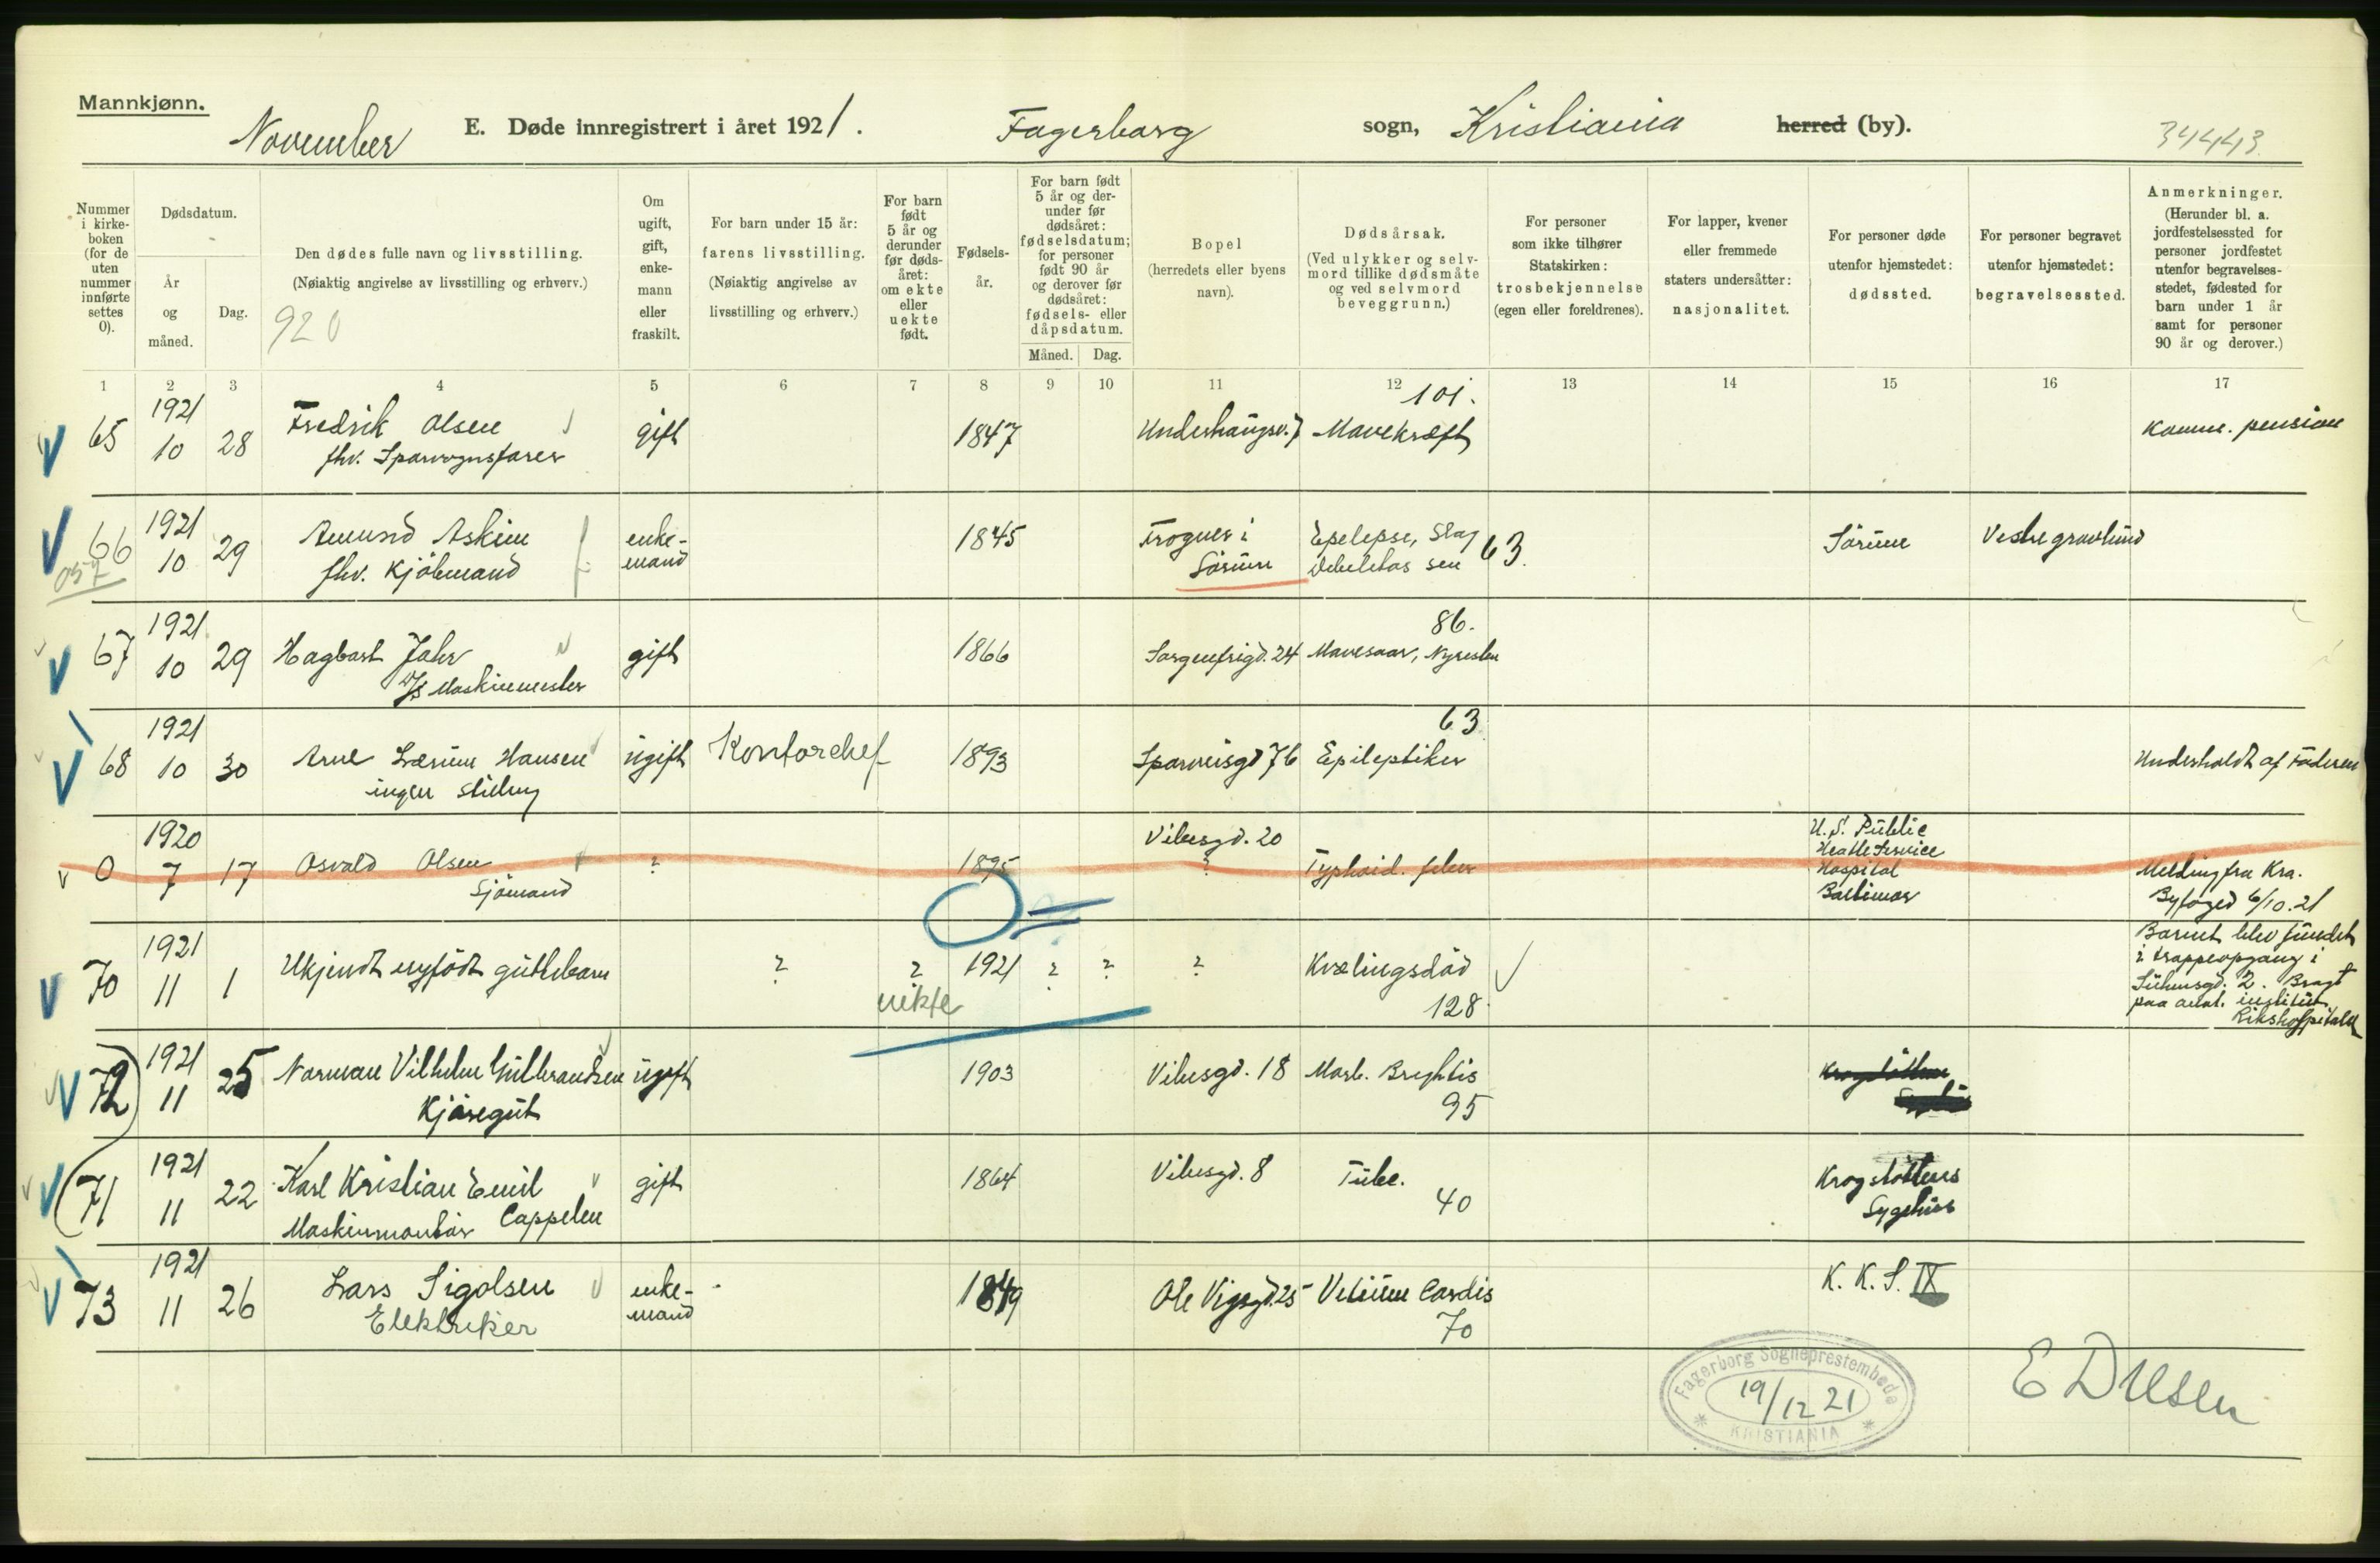 Mannkjønn.
November E. Døde innregistrert i året 1921. Fagerborg sogn, Kristiania herred (by). 34443
Nummer i kirke-boken (for de uten nummer innførte settes 0).
Dødsdatum.
År og måned.
Dag.
Den dødes fulle navn og livsstilling.
(Nøiaktig angivelse av livsstilling og erhverv.)
920
Om ugift, gift, enke-mann eller fraskilt.
For barn under 15 år: farens livsstilling.
(Nøiaktig angivelse av livsstilling og erhverv.)
For barn født 5 år og derunder før døds-året: om ekte eller uekte født.
Fødsels-år.
For barn født 5 år og der-under før dødsåret: fødselsdatum; for personer født 90 år og derover før dødsåret: fødsels- eller dåpsdatum.
Måned. Dag.
Bopel
(herredets eller byens navn).
Dødsårsak.
(Ved ulykker og selv-mord tillike dødsmåte og ved selvmord beveggrunn.)
For personer som ikke tilhører Statskirken: trosbekjennelse (egen eller foreldrenes).
For lapper, kvener eller fremmede staters undersåtter: nasjonalitet.
For personer døde utenfor hjemstedet: dødssted.
For personer begravet utenfor hjemstedet: begravelsessted.
Anmerkninger.
(Herunder bl. a. jordfestelsessted for personer jordfestet utenfor begravelses-stedet, fødested for barn under 1 år samt for personer 90 år og derover.)
1 2 3 4 5 6 7 8 9 10 11 12 13 14 15 16 17
65 1921 10 28 Fredrik Olsen gift 1847 Underhaugsv. 7 Mavekræft 101. Komm. pension
fhv. Sporvognsfører
66 1921 10 29 Amund Askim enke-mand 1845 Frogner i Sørum Epelepse, Slag Debeletas sen 63. Sørum Vestre gravlund
fhv. Kjöbmand
67 1921 10 29 Hagbart Jahr gift 1866 Sorgenfrigd. 24 Mavesaar, Nyresten 86.
Maskinmester
68 1921 10 30 Arne Lærum Hansen ugift Kontorchef 1893 Sporveisgd 76 Epileptiker 63 Underholdt af Faderen
ingen stilling
0 1920 7 17 Osvald Olsen ? 1895 Vibesgd. 20 ? Typhoid. feber U. S. Public Health Service Hospital Baltimor Melding fra Kra. Byfoged 6/10.21
Sjömand
70 1921 11 1 Ukjendt nyfödt guttebarn ? ? uekte 1921 ? ? ? Kvælingsdöd 128 Barnet blev fundet i trappeopgang i Suhmsgd. 2. Bragt paa anat. institut Rikshospitalet
72 1921 11 25 Norman Vilhelm Gulbrandsen ugift 1903 Vibesgd. 18 Morb. Brightis 95
Kjöregut
71 1921 11 22 Karl Kristian Emil Cappelen gift 1864 Vibesgd. 8 Tube. 40 Krogstöttens Sygehus
Maskinmontör
73 1921 11 26 Lars Sigolsen enke-mand 1849 Ole Vigsgd. 25 Vetium Cordis 70 K. K. S. IX
Elektriker
Fagerborg Sogneprestembede
19/12 21
KRISTIANIA